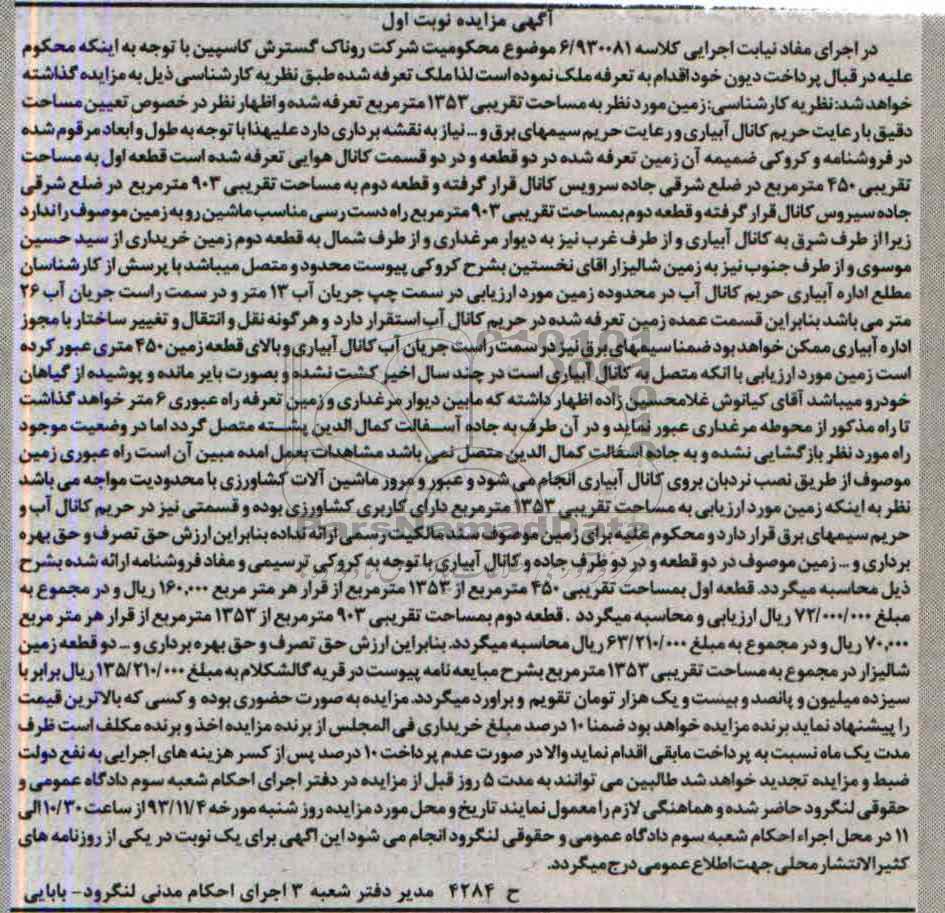 آگهی مزایده نوبت اول
در اجرای مفاد نیابت اجرایی کلاسه ۶/۹۳۰۰۸۱ موضوع محکومیت شرکت روناک گسترش کاسپین با توجه به اینکه محکوم
علیه در قبال پرداخت دیون خود اقدام به تعرفه ملک نموده است لذا ملک تعرفه شده طبق نظریه کارشناسی ذیل به مزایده گذاشته
خواهد شد: نظریه کارشناسی: زمین مورد نظر به مساحت تقریبی ۱۳۵۳ مترمربع تعرفه شده و اظهار نظر در خصوص تعیین مساحت
دقیق با رعایت حریم کانال آبیاری و رعایت حریم سیمهای برق و ... نیاز به نقشه برداری دارد علیهذا با توجه به طول و ابعاد مرقوم شده
در فروشنامه و کروکی ضمیمه آن زمین تعرفه شده در دو قطعه و در دو قسمت کانال هوایی تعرفه شده است قطعه اول به مساحت
تقریبی ۴۵۰ مترمربع در ضلع شرقی جاده سرویس کانال قرار گرفته و قطعه دوم به مساحت تقریبی ۹۰۳ مترمربع در ضلع شرقی
جاده سیروس کانال قرار گرفته و قطعه دوم بمساحت تقریبی ۹۰۳ مترمربع راه دست رسی مناسب ماشین رو به زمین موصوف را ندارد
زیرا از طرف شرق به کانال آبیاری و از طرف غرب نیز به دیوار مرغداری و از طرف شمال به قطعه دوم زمین خریداری از سید حسین
موسوی و از طرف جنوب نیز به زمین شالیزار اقای نخستین بشرح کروکی پیوست محدود و متصل میباشد با پرسش از کارشناسان
مطلع اداره آبیاری حریم کانال آب در محدوده زمین مورد ارزیابی در سمت چپ جریان آب ۱۳ متر و در سمت راست جریان آب ۲۶
متر می باشد بنابراین قسمت عمده زمین تعرفه شده در حریم کانال آب استقرار دارد و هرگونه نقل و انتقال و تغییر ساختار با مجوز
اداره آبیاری ممکن خواهد بود ضمنا سیمهای برق نیز در سمت راست جریان آب کانال آبیاری و بالای قطعه زمین ۴۵۰ متری عبور کرده
است زمین مورد ارزیابی با انکه متصل به کانال آبیاری است در چند سال اخیر کشت نشده و بصورت بایر مانده و پوشیده از گیاهان
خودرو میباشد آقای کیانوش غلامحسین زاده اظهار داشته که مابین دیوار مرغداری و زمین تعرفه راه عبوری ۶ متر خواهد گذاشت
تا راه مذکور از محوطه مرغداری عبور نماید و در آن طرف به جاده آسفالت کمال الدین پشته متصل گردد اما در وضعیت موجود
راه مورد نظر بازگشایی نشده و به جاده اسفالت کمال الدین متصل نمی باشد مشاهدات بعمل امده مبین آن است راه عبوری زمین
موصوف از طریق نصب نردبان بروی کانال آبیاری انجام می شود و عبور و مرور ماشین آلات کشاورزی با محدودیت مواجه می باشد
نظر به اینکه زمین مورد ارزیابی به مساحت تقریبی ۱۳۵۳ مترمربع دارای کاربری کشاورزی بوده و قسمتی نیز در حریم کانال آب و
حریم سیمهای برق قرار دارد و محکوم علیه برای زمین موصوف سند مالکیت رسمی ارائه نداده بنابراین ارزش حق تصرف و حق بهره
برداری و ... زمین موصوف در دو قطعه و در دو طرف جاده و کانال آبیاری با توجه به کروکی ترسیمی و مفاد فروشنامه ارائه شده بشرح
ذیل محاسبه میگردد. قطعه اول بمساحت تقریبی ۴۵۰ مترمربع از ۱۳۵۳ مترمربع از قرار هر متر مربع ۱۶۰,۰۰۰ ریال و در مجموع به
مبلغ ۷۲/۰۰۰/۰۰۰ ریال ارزیابی و محاسبه میگردد . قطعه دوم بمساحت تقریبی ۹۰۳ مترمربع از ۱۳۵۳ مترمربع از قرار هر متر مربع
۷۰,۰۰۰ ریال و در مجموع به مبلغ ۶۳/۲۱۰/۰۰۰ ریال محاسبه میگردد. بنابراین ارزش حق تصرف و حق بهره برداری و ... دو قطعه زمین
شالیزار در مجموع به مساحت تقریبی ۱۳۵۳ مترمربع بشرح مبایعه نامه پیوست در قریه گالشکلام به مبلغ ۱۳۵/۲۱۰/۰۰۰ ریال برابر با
سیزده میلیون و پانصد و بیست و یک هزار تومان تقویم و براورد میگردد. مزایده به صورت حضوری بوده و کسی که بالاترین قیمت
را پیشنهاد نماید برنده مزایده خواهد بود ضمنا ۱۰ درصد مبلغ خریداری فی المجلس از برنده مزایده اخذ و برنده مکلف است ظرف
مدت یک ماه نسبت به پرداخت مابقی اقدام نماید والا در صورت عدم پرداخت ۱۰ درصد پس از کسر هزینه های اجرایی به نفع دولت
ضبط و مزایده تجدید خواهد شد طالبین می توانند به مدت ۵ روز قبل از مزایده در دفتر اجرای احکام شعبه سوم دادگاه عمومی و
حقوقی لنگرود حاضر شده و هماهنگی لازم را معمول نمایند تاریخ و محل مورد مزایده روز شنبه مورخه ۹۳/۱۱/۴ از ساعت ۱۰/۳۰ الی
۱۱ در محل اجراء احکام شعبه سوم دادگاه عمومی و حقوقی لنگرود انجام می شود این اگهی برای یک نوبت در یکی از روزنامه های
کثیرالانتشار محلی جهت اطلاع عمومی درج میگردد.
ح ۴۲۸۴ مدیر دفتر شعبه ۳ اجرای احکام مدنی لنگرود- بابایی
ParsNamadData